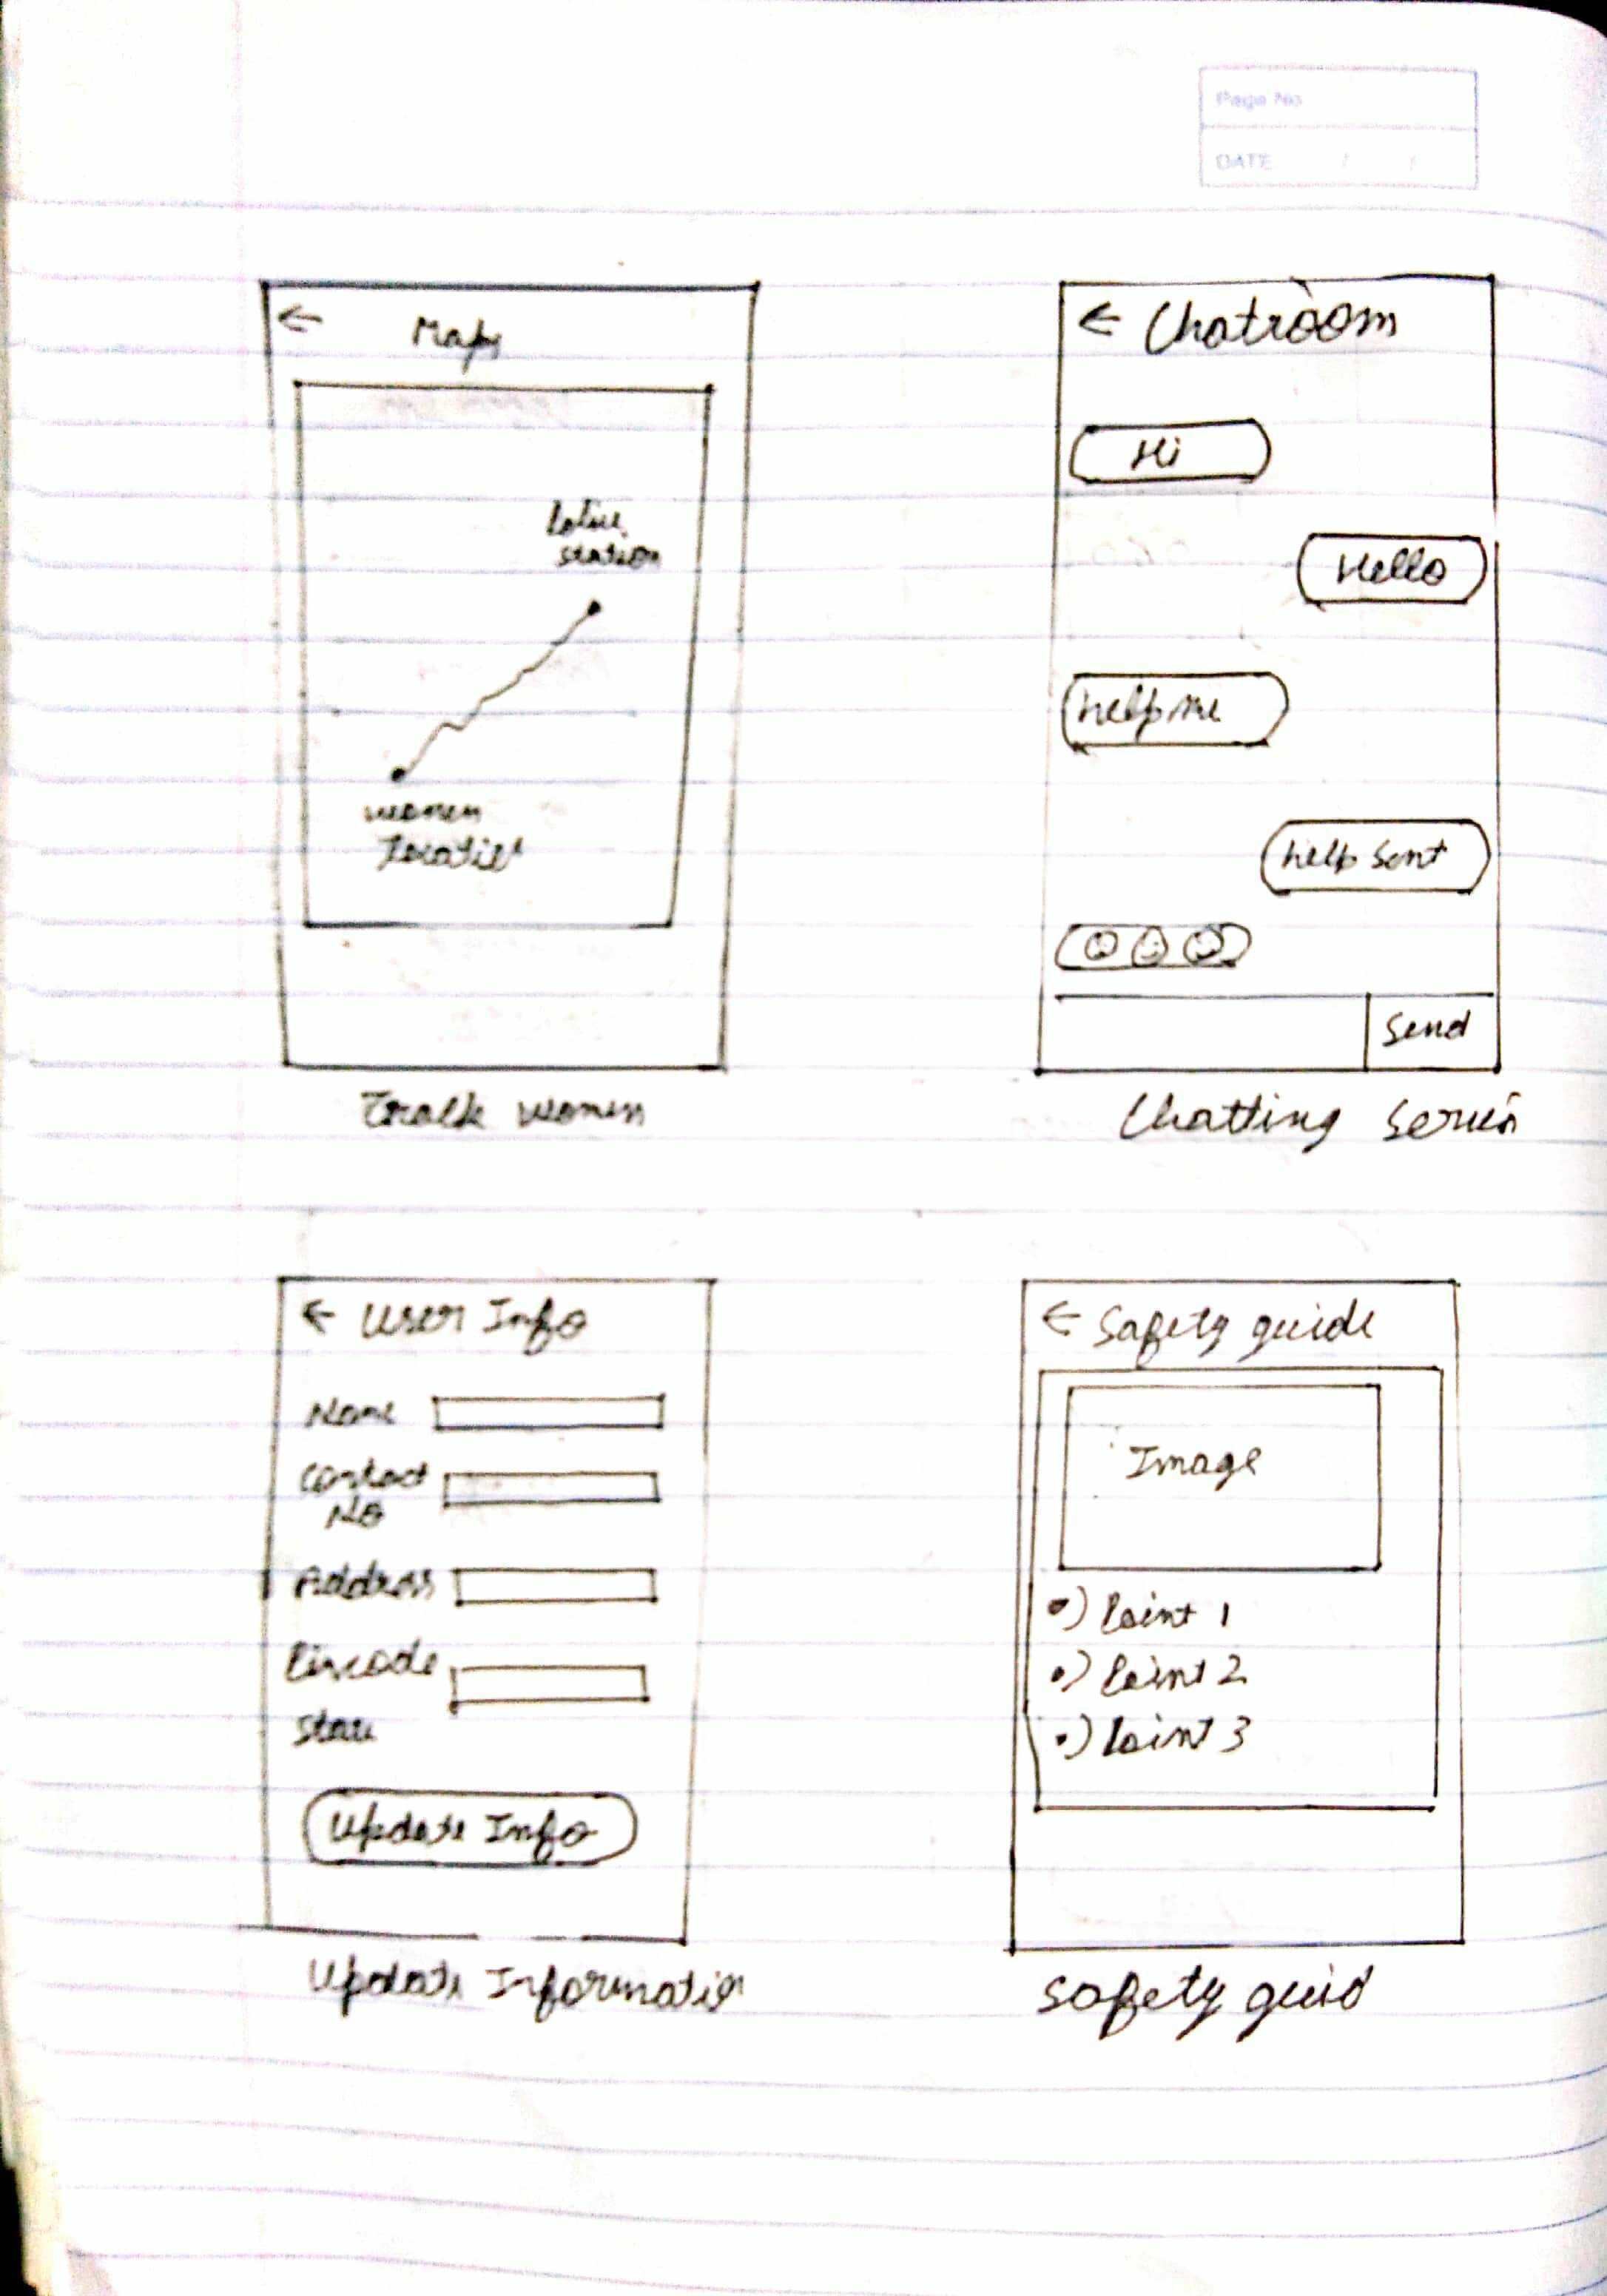 Page No
DATE / /
← Maps
Police
station
women
Location
Track women
← Chatroom
Hi
Hello
help me
help sent
Send
Chatting Servis
← User Info
Name
Contact
No
Address
Pincode
State
Update Info
Update Information
← Safety guide
Image
•) Point 1
•) Point 2
•) Point 3
Safety guid